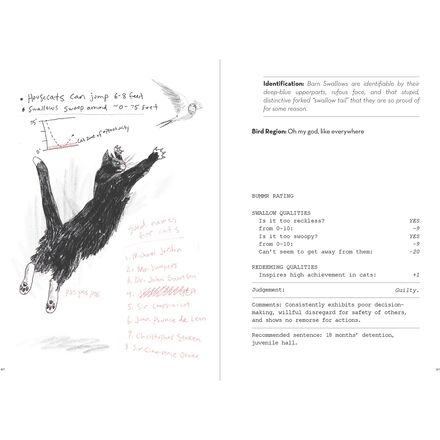 • Housecats can jump 6-8 feet
• Swallows swoop around ~0-75 feet
75'
0
cat zone of opportunity
good names
for cats
1. Michael Jordan
2. Mr. Jumpers
3. Dr. John Swanson
4.
5. Sir Leapsalot
6.
7. Christopher
8. Sir
pss pss pss
Identification: Barn Swallows are identifiable by their
deep-blue upperparts, rufous face, and that stupid,
distinctive forked "swallow tail" that they are so proud of
for some reason.
Bird Region: Oh my god, like everywhere
BUMMR RATING
SWALLOW QUALITIES
Is it too reckless? YES
from 0-10: -9
Is it too swoopy? YES
from 0-10: -9
Can't seem to get away from them: -20
REDEEMING QUALITIES
Inspires high achievement in cats: +1
Judgement: Guilty.
Comments: Consistently exhibits poor decision-
making, willful disregard for safety of others,
and shows no remorse for actions.
Recommended sentence: 18 months' detention,
juvenile hall.